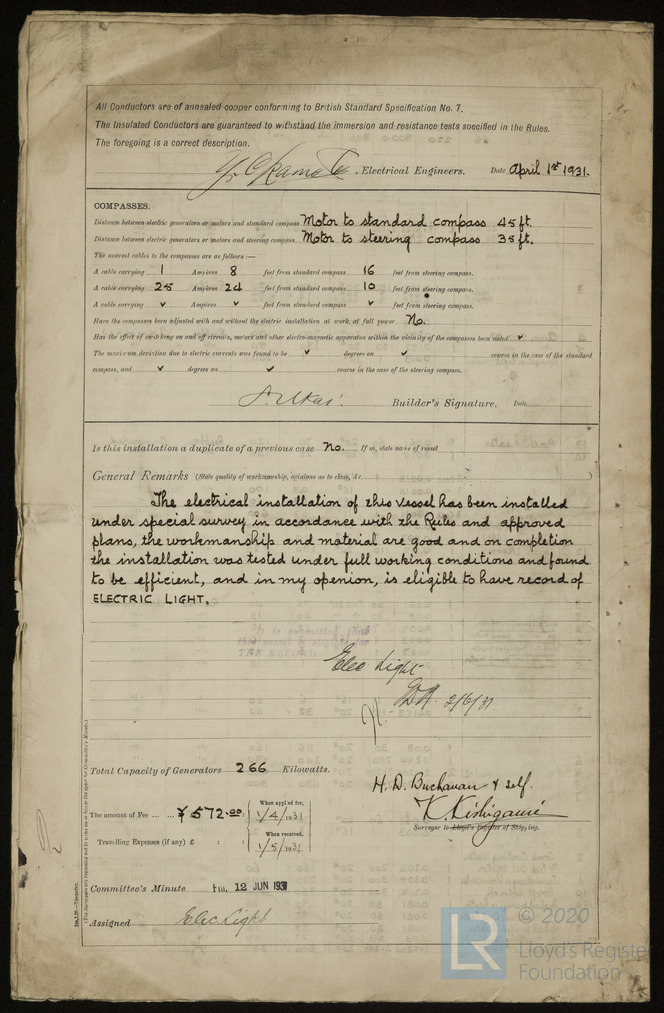 All Conductors are of annealed copper conforming to British Standard Specification No. 7.
The Insulated Conductors are guaranteed to withstand the immersion and resistance tests specified in the Rules.
The foregoing is a correct description.
Electrical Engineers. Date April 1st 1931.
COMPASSES.
Distance between electric generators or motors and standard compass Motor to standard compass 45 ft.
Distance between electric generators or motors and steering compass Motor to steering compass 35 ft.
The nearest cables to the compasses are as follows:—
A cable carrying 1 Ampères 8 feet from standard compass 16 feet from steering compass.
A cable carrying 25 Ampères 24 feet from standard compass 10 feet from steering compass.
A cable carrying ✓ Ampères ✓ feet from standard compass ✓ feet from steering compass.
Have the compasses been adjusted with and without the electric installation at work at full power No.
Has the effect of switching on and off circuits, motors and other electro-magnetic apparatus within the vicinity of the compasses been noted ✓
The maximum deviation due to electric currents was found to be ✓ degrees on ✓ course in the case of the standard
compass, and ✓ degrees on ✓ course in the case of the steering compass.
Builder's Signature. Date
Is this installation a duplicate of a previous case No. If so, state name of vessel
General Remarks (State quality of workmanship, opinions as to class, &c.)
The electrical installation of this vessel has been installed
under special survey in accordance with the Rules and approved
plans, the workmanship and material are good and on completion
the installation was tested under full working conditions and found
to be efficient, and in my openion, is eligible to have record of
ELECTRIC LIGHT.
Elec Light
2/6/31
Total Capacity of Generators 266 Kilowatts.
H. D. Buchanan & self.
The amount of Fee ... ... ¥ 572.00
When applied for,
1/4/1931
K. Kishigami
Surveyor to Lloyd's Register of Shipping.
Travelling Expenses (if any) £ : :
When received,
1/5/1931
Committee's Minute FRI. 12 JUN 1931
Assigned Elec Light
LR © 2020
Lloyd's Register
Foundation